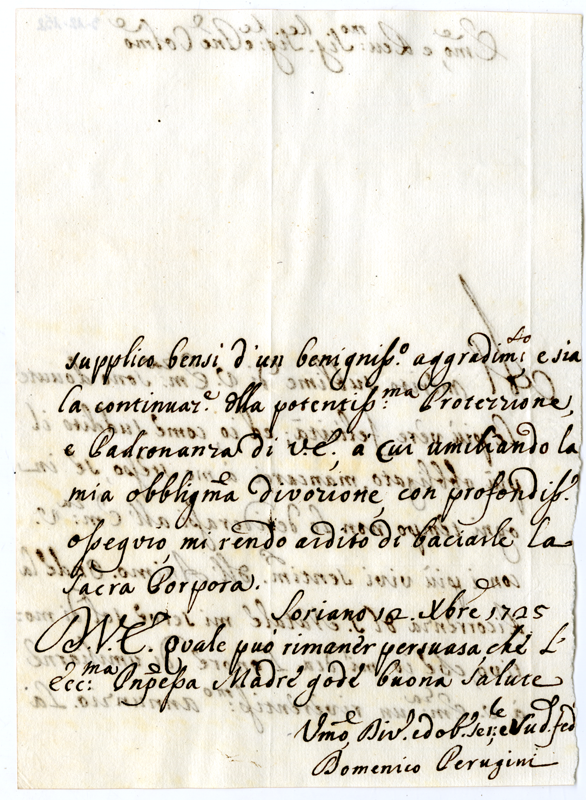 supplico bensi d'un benigniss.º aggradim.to e sia
la continuaz.e della potentiss.ma Protezzione,
e Padronanza di V.E., a cui umiliando la
mia obbligma divozione, con profondiss.º
ossequio, mi rendo ardito di baciarle la
Sacra Porpora.
Soriano 12. Xbre 1725
D.V.E. Quale può rimaner persuasa che L'
Ecc.ma Pnpessa Madre gode buona salute
Umo Div.o ed ob. ser.le e Sud. fed
Domenico Perugini